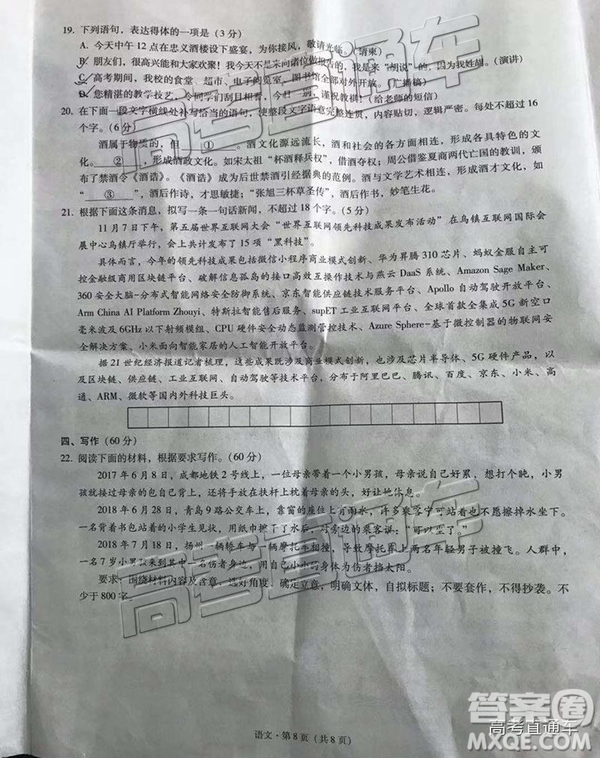 19. 下列语句，表达得体的一项是（3分）
A. 今天中午12点在忠义酒楼设下盛宴，为你接风，敬请光临。（请柬）
B. 朋友们，很高兴能和大家
C. 高考期间，我校的食堂、超市、电子阅览室、图书馆全部对外开放。（广播稿）
D. 您精湛的教学技艺，令同学们刮目相看，今
20. 在下面一段文字横线处补写恰当的语句，使整段文字语意完整连贯，内容贴切，逻辑严密。每处不超过16
个字。（6分）
酒属于物质的，但 ① 。酒文化源远流长，酒和社会的各方面结合，形成各具特色的文
化。 ② ，形成酒政文化。如宋太祖“杯酒释兵权”，借酒夺权；周公借鉴夏商两代亡国的教训，颁
布了禁酒令《酒诰》。《酒诰》成为后世禁酒引经据典的范例。酒与文学艺术结合，形成酒文艺。
“ ③ ”，酒后作诗，才思敏捷；“张旭三杯草圣传”，酒后作书，妙笔生花。
21. 根据下面这条消息，拟写一条一句话新闻，不超过18个字。（5分）
11月7日下午，第五届世界互联网大会“世界互联网领先科技成果发布活动”在乌镇互联网国际会
展中心乌镇厅举行，会上共计发布了15项“黑科技”。
具体而言，今年的领先科技成果包括微信小程序商业模式创新、华为昇腾310芯片、蚂蚁金服自主可
控金融级商用区块链平台、破解信息孤岛的接口高效互操作技术与燕云DaaS系统、Amazon Sage Maker、
360安全大脑-分布式智能网络安全防御系统、京东智能供应链技术服务平台、Apollo自动驾驶开放平台、
Arm China AI Platform Zhouyi、特斯拉智能售后服务、supET工业互联网平台、全球首款全集成5G新空口
毫米波及6GHz以下射频模组、CPU硬件安全动态监测管控技术、Azure Sphere-基于微控制器的物联网安
全解决方案、小米面向智能家居的人工智能开放平台。
据21世纪经济报道记者梳理，这些成果既涉及商业模式创新，也涉及芯片半导体、5G硬件产品，以
及区块链、供应链、工业互联网、自动驾驶等技术平台，分布于阿里巴巴、腾讯、百度、京东、小米、高
通、ARM、微软等国内外科技巨头。
四、写作（60分）
22. 阅读下面的材料，根据要求写作。（60分）
2017年6月8日，成都地铁2号线上，一位母亲带着一个小男孩，母亲说自己好累，想打个盹，小男
孩就把手轻轻的放在扶杆上枕着母亲的头，好让她休息。
2018年6月28日，青岛9路公交车上，靠窗的座位上有面水，许多乘客宁可站着也不愿擦掉水坐下。
一名背着书包站着的小学生见状，用纸巾擦了水后，对旁边的乘客说：“可以坐了”。
2018年7月18日，扬州一辆轿车与一辆摩托车相撞，导致摩托车上两名年轻男子被撞飞。人群中，
一名7岁小男孩来到其中一名伤者身边，用自己小小的身体为伤者挡太阳。
要求：围绕材料内容及含意，选好角度，确定立意，明确文体，自拟标题；不要套作，不得抄袭。不
少于800字。
语文·第8页（共8页）
高考直通车
答案圈
高考直通车
MXQE.COM